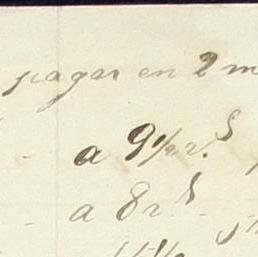 pagar en 2 m
a 9½ r.s
a 8 r.s